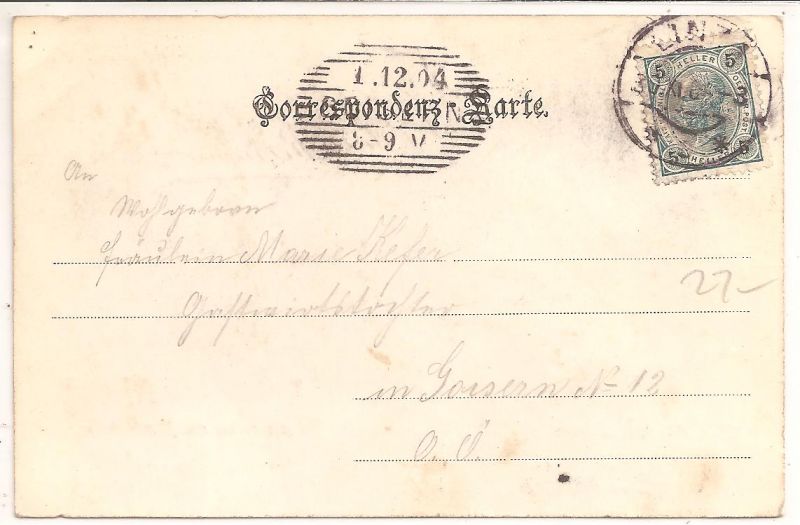 1.12.04
Correspondenz-Karte.
8-9 V
LINZ
5 HELLER 5
5 HELLER 5
An
Wohlgeborn
Fräulein Marie Kefer
Gastwirtstochter
in Goisern No 12
O. Ö.
27-